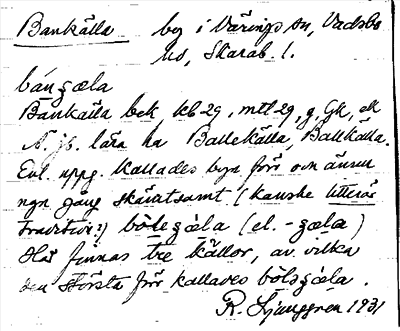 Bankälla by i Värings sn, Vadsbo
hd, Skarab. l.
bángæla
Bankälla bek, kb 29, mtl 29, g, Gk, ek
N. js. lära ha Ballekälla, Ballkälla.
Enl. uppg. kallades byn förr och ännu
ngn gång skämtsamt (kanske litterär
tradition?) bölsgæla (el. -gæla)
Här finnas tre källor, av vilka
den största förr kallades bölsgæla.
R. Ljunggren 1931